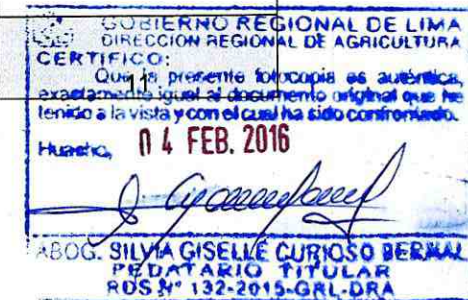 GOBIERNO REGIONAL DE LIMA
DIRECCION REGIONAL DE AGRICULTURA
CERTIFICO:
Que la presente fotocopia es auténtica,
exactamente igual al documento original que he
tenido a la vista y con el cual ha sido confrontado.
Huacho, 04 FEB. 2016
ABOG. SILVIA GISELLE CURIOSO BERMAL
PEDATARIO TITULAR
RDS Nº 132-2015-GRL-DRA